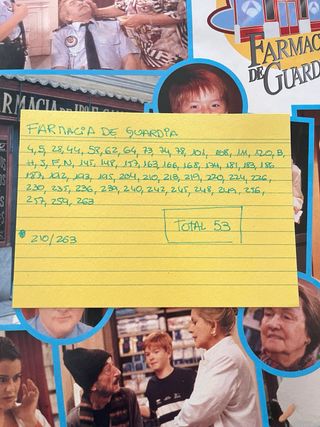 FARMACIA
DE GUARDIA
FARMACIA DE
FARMACIA DE GUARDIA
4, 5, 28, 44, 58, 62, 64, 73, 74, 78, 101, 108, 111, 120, B,
H, J, F, N, 145, 148, 157, 163, 166, 168, 174, 181, 183, 186
187, 192, 193, 195, 204, 210, 213, 219, 220, 224, 226,
230, 235, 236, 239, 240, 242, 245, 248, 249, 256,
257, 259, 263
TOTAL 53
* 210/263